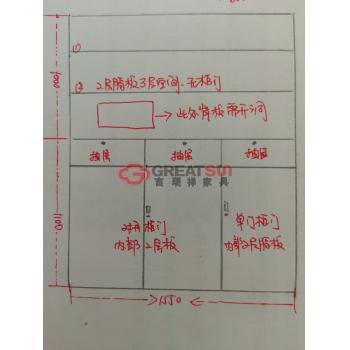 1000
①
② 2层隔板3层空间.无柜门
→此处背板需开洞
抽屉
抽屉
抽屉
GREATSUN
吉瑞祥家具
1100
对开柜门
内部2层板
单门柜门
内部2层隔板
1550